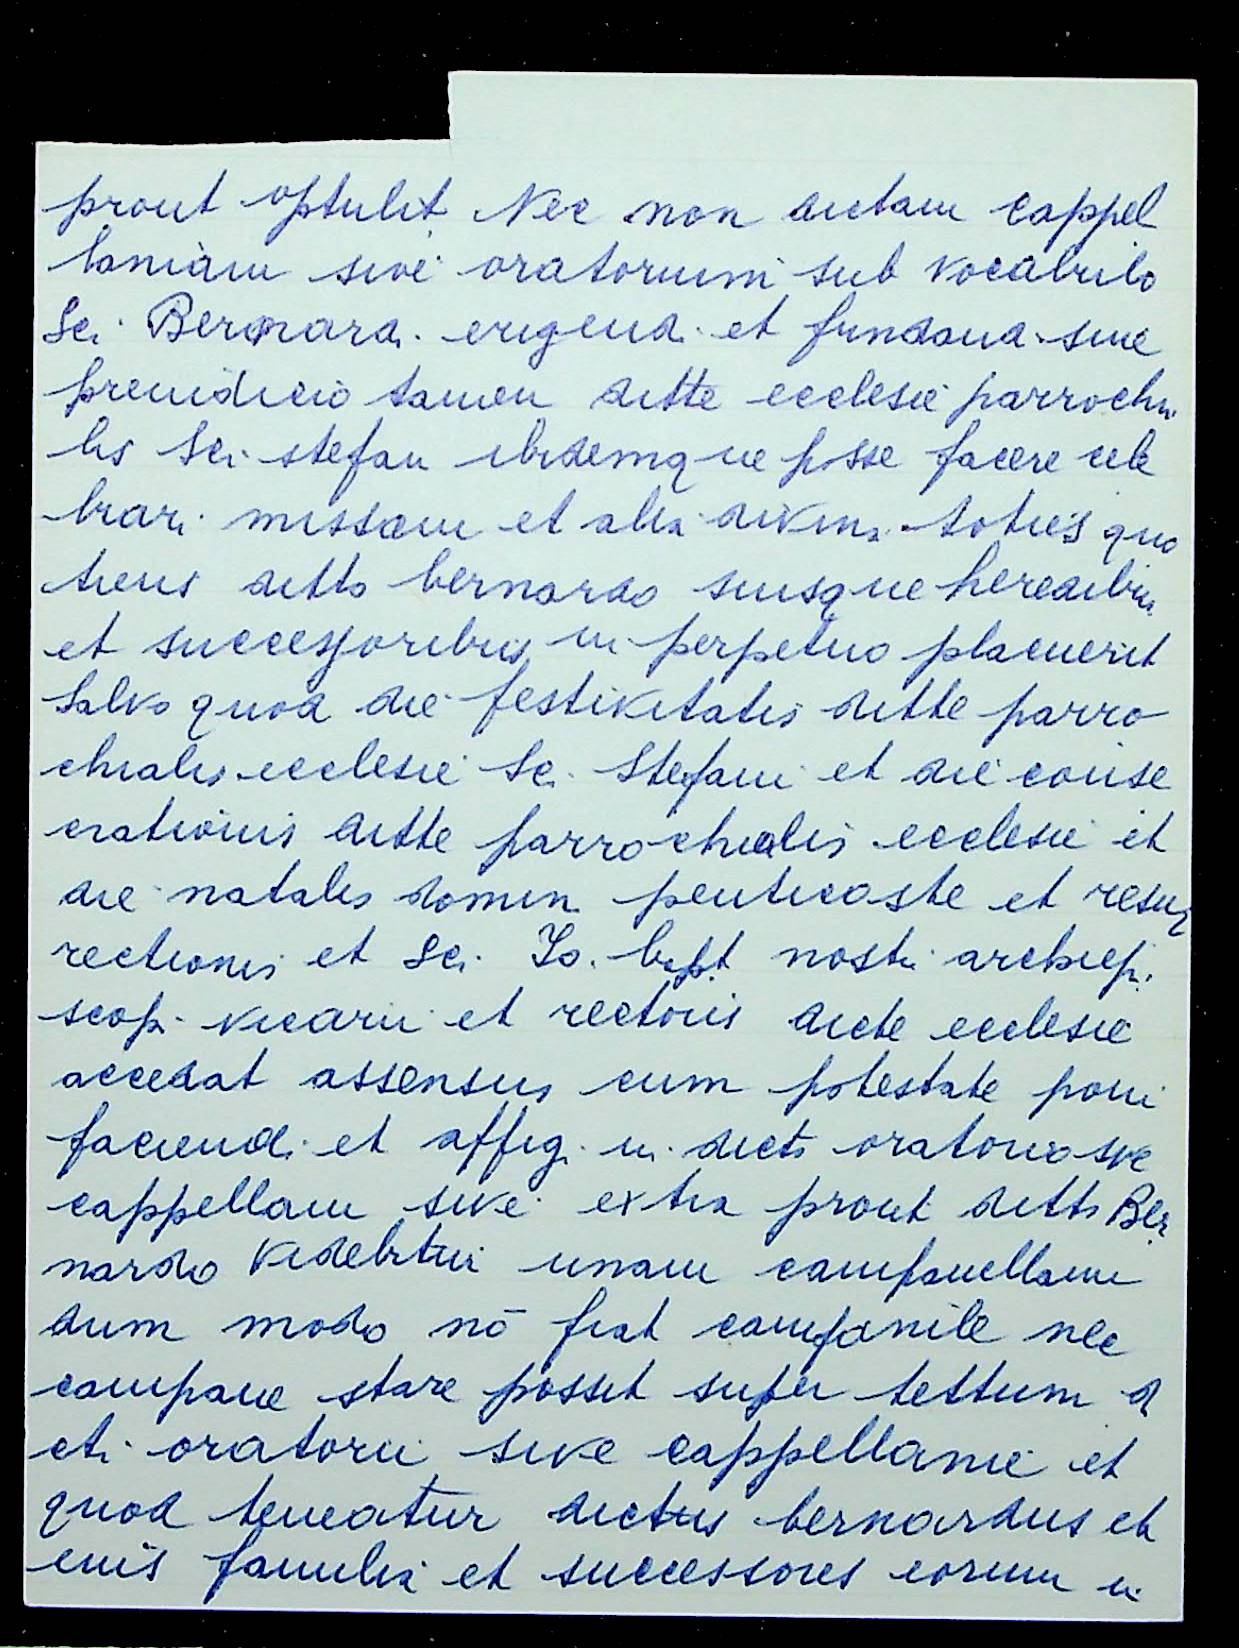 prout optulit Nec non dictam cappel
laniam sive oratorium sub vocabulo
Sci. Bernard. erigend. et fundand. sine
preiudicio tamen ditte ecclesie parrochia
lis Sci. Stefan ibidemque posse facere cele
brari missam et alia divina toties quo
tiens ditto bernardo suisque heredibus
et successoribus in perpetuo placuerit
Salvo quod die festivitatis ditte parro
chialis ecclesie Sc. Stefani et die conse
crationis ditte parrochialis ecclesie et
die natalis domin. penticoste et resur
rectionis et Sci. Io. bapt nostri archiepi.
scop. vicarii et rectoris dicte ecclesie
accedat assensus cum potestate poni
faciend. et affig. in dicto oratorio sive
cappellam sive extra prout ditto Ber
nardo videbitur unam campanellam
dum modo nō fiat campanile nec
campane stare possit super tettum di
cti oratorii sive cappellanie et
quod teneatur dictus bernardus et
euis familia et successores eorum in